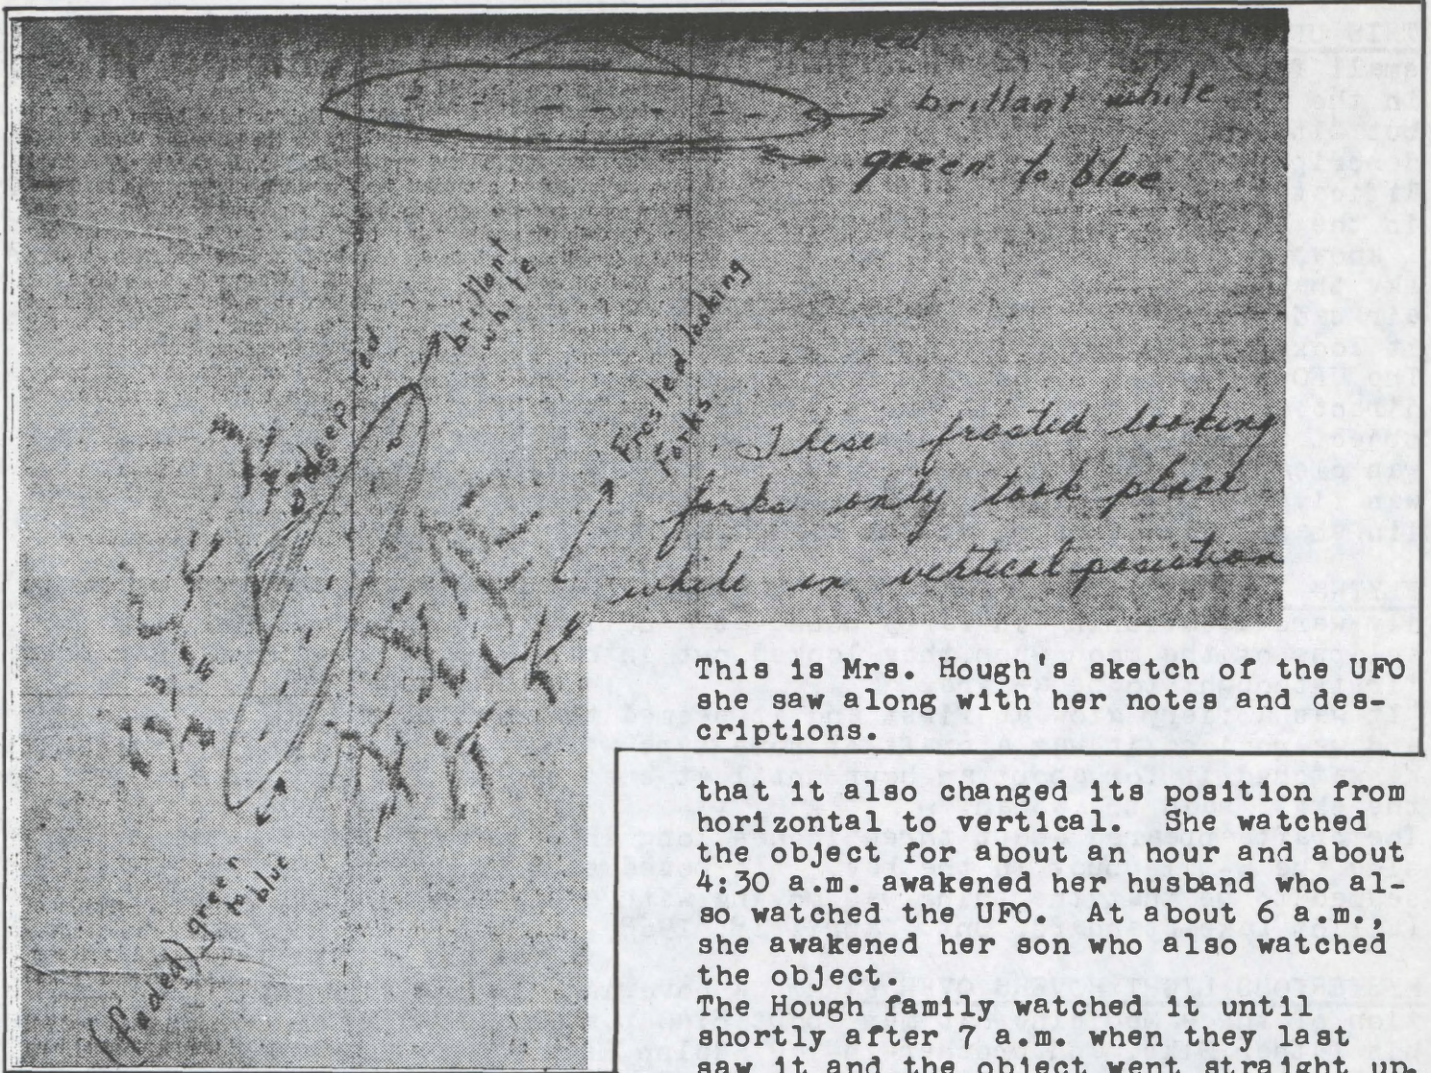 red
brillant white
green to blue
brillant
white
deep red
Frosted looking
forks
These frosted looking
forks only took place
while in vertical position
(faded) green
to blue
This is Mrs. Hough's sketch of the UFO
she saw along with her notes and des-
criptions.
that it also changed its position from
horizontal to vertical. She watched
the object for about an hour and about
4:30 a.m. awakened her husband who al-
so watched the UFO. At about 6 a.m.,
she awakened her son who also watched
the object.
The Hough family watched it until
shortly after 7 a.m. when they last
saw it and the object went straight up.